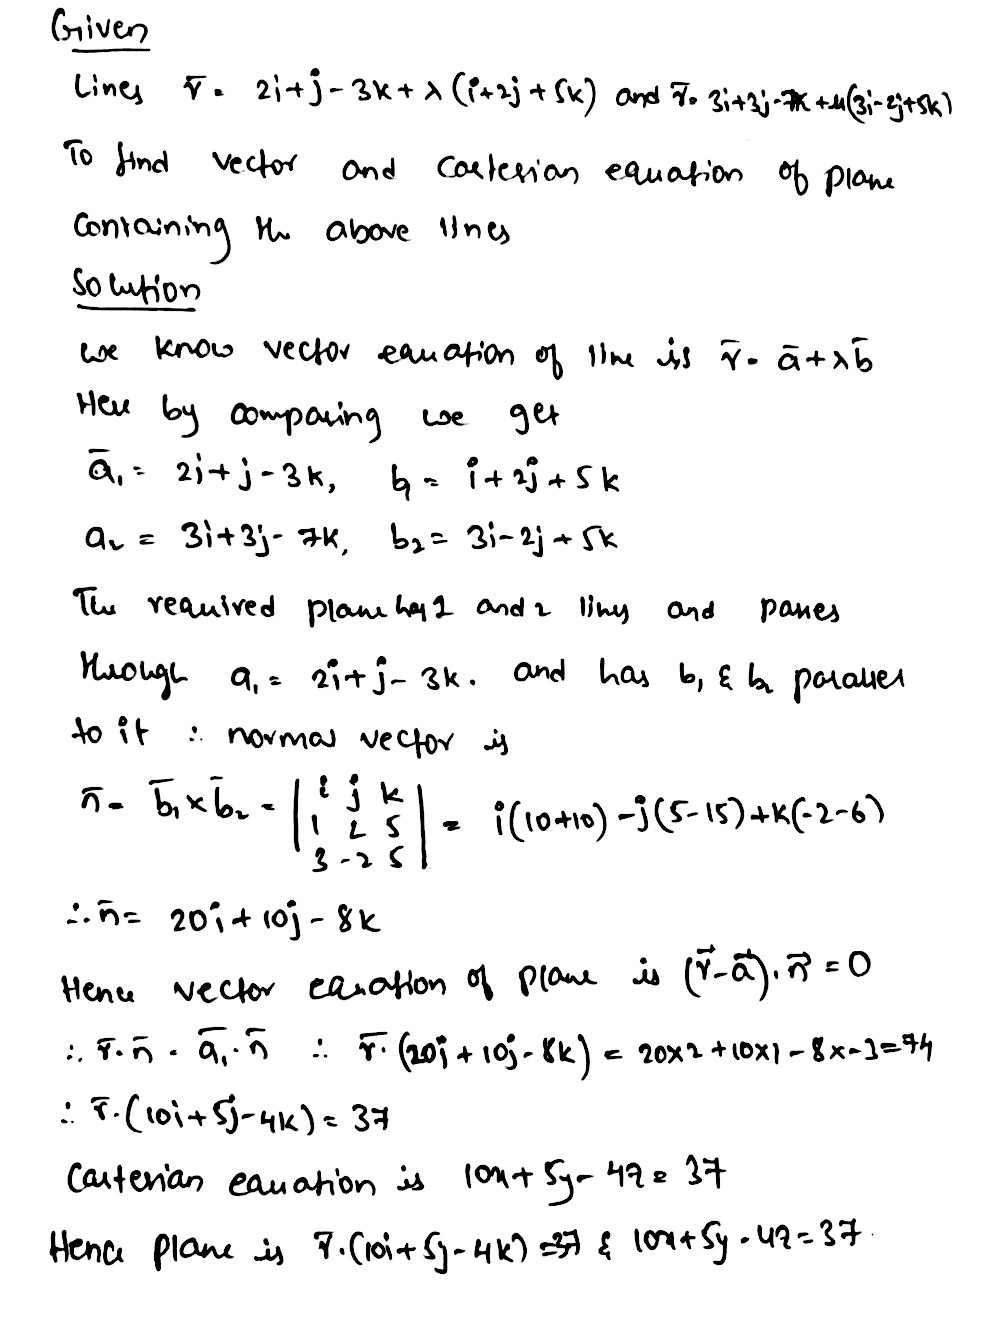 Given
Lines r̄ = 2i+j-3k+λ(i+2j+5k) and r̄= 3i+3j-7k+μ(3i-2j+5k)
To find vector and cartesian equation of plane
containing the above lines
Solution
we know vector equation of line is r̄ = ā+λb̄
Here by comparing we get
ā₁ = 2i+j-3k, b₁ = i+2j+5k
a₂ = 3i+3j-7k, b₂ = 3i-2j+5k
The required plane has 1 and 2 lines and passes
through a₁ = 2i+j-3k. and has b₁ & b₂ parallel
to it ∴ normal vector is
n̄ = b̄₁×b̄₂ = | i j k | 1 2 5 | 3 -2 5 | = i(10+10)-j(5-15)+k(-2-6)
∴ n̄ = 20i+10j-8k
Hence vector equation of plane is (r⃗-a⃗).n⃗ = 0
∴ r̄.n̄ = ā₁.n̄ ∴ r̄.(20i+10j-8k) = 20x2+10x1-8x-3=74
∴ r̄.(10i+5j-4k) = 37
Cartesian equation is 10x+5y-4z = 37
Hence plane is r̄.(10i+5j-4k) =37 & 10x+5y-4z=37.